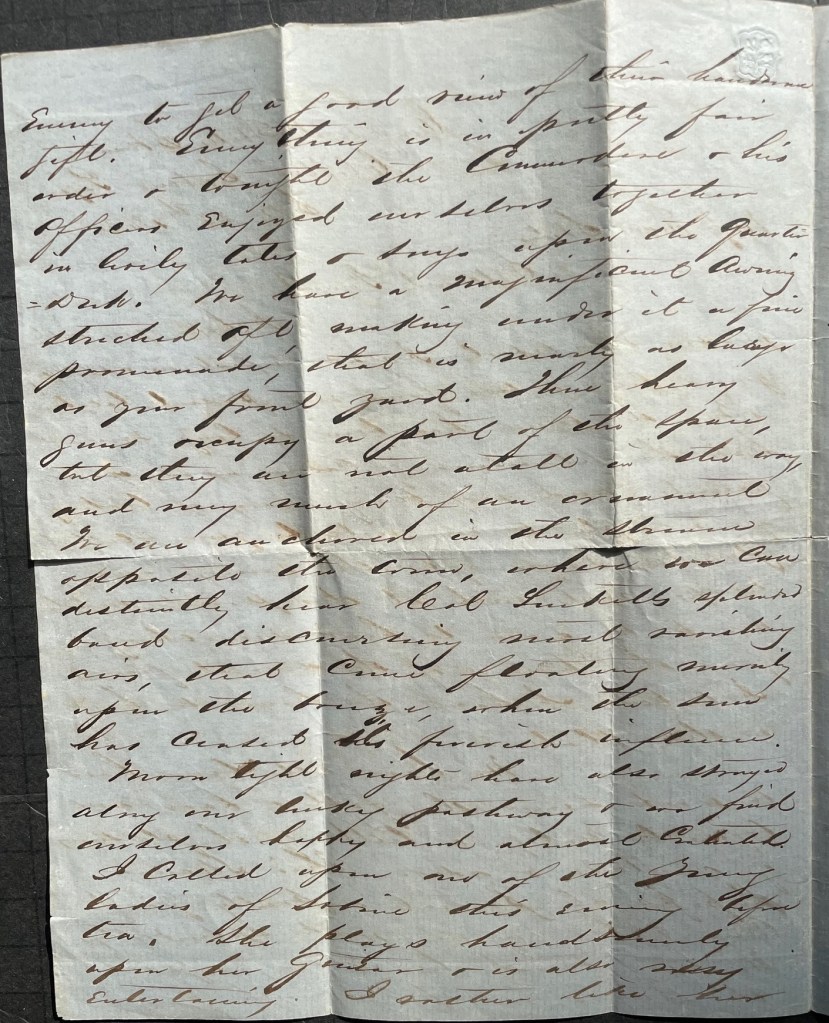 Evening to get a good view of their handsome
gift. Everything is in pretty fair
order & tonight the Commodore & his
officers Enjoyed ourselves together
in lively tales & songs upon the Quarter
=Deck. We have a magnificient Awning
streched aft, making under it a fine
promenade, that is nearly as large
as your front yard. Three heavy
guns occupy a part of the space,
but they are not atall in the way,
and very much of an ornament
We are anchored in the stream
opposite the town, where we can
distinctly hear Col splendid
band discoursing most ravishing
airs, that come floating merrily
upon the breeze, when the sun
has ceased its feverish influence.
Moon light nights have also strayed
along our lucky pathway & we find
ourselves happy and almost Contented.
I Called upon one of the young
ladies of Sabine this evening before
tea. She plays handsomely
upon her Guitar & is also very
Entertaining. I rather like her